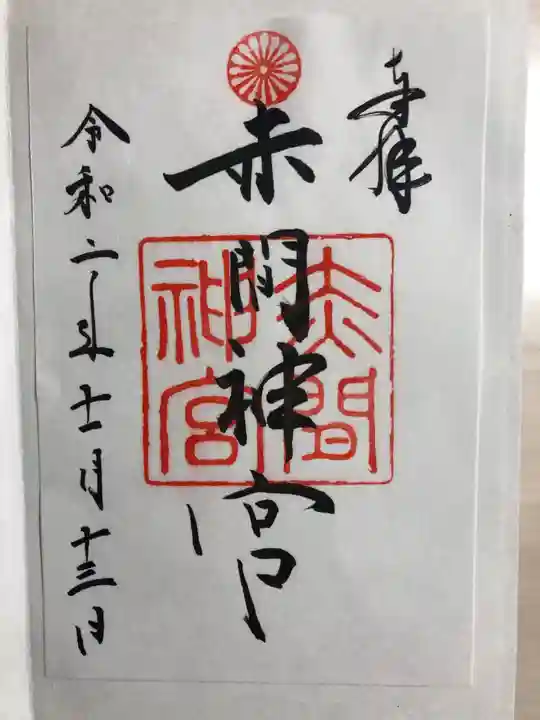 奉拝
赤間神宮
赤間神宮
令和二年十一月十三日